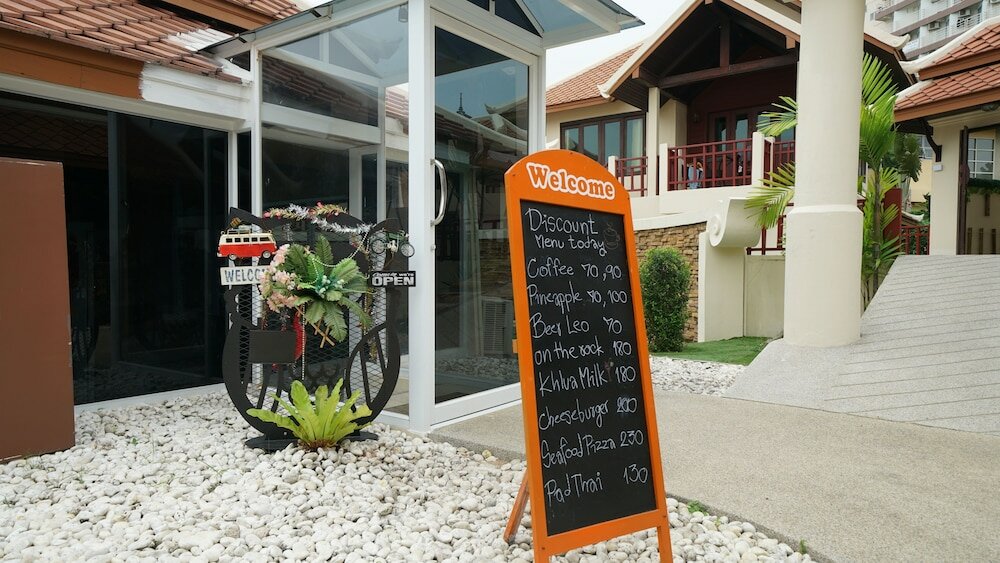 Welcome
Discount
Menu today
Coffee 70,90
Pineapple 70,100
Beer Leo 70
on the rock 180
Khlua Milk 180
Cheeseburger 200
Seafood Pizza 230
Pad Thai 130
WELCOME
OPEN